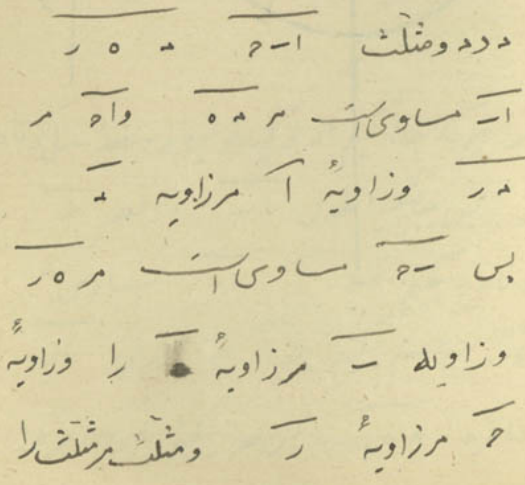 در دو مثلث ا ب ح د ه ر
ا ب مساوی است مر د ه و ا ح مر
د ر و زاویهٔ ا مر زاویه د
پس ب ح مساوی است مر ه ر
و زاویه ب مر زاویهٔ ه را و زاویهٔ
ح مر زاویهٔ ر و مثلث مر مثلث را